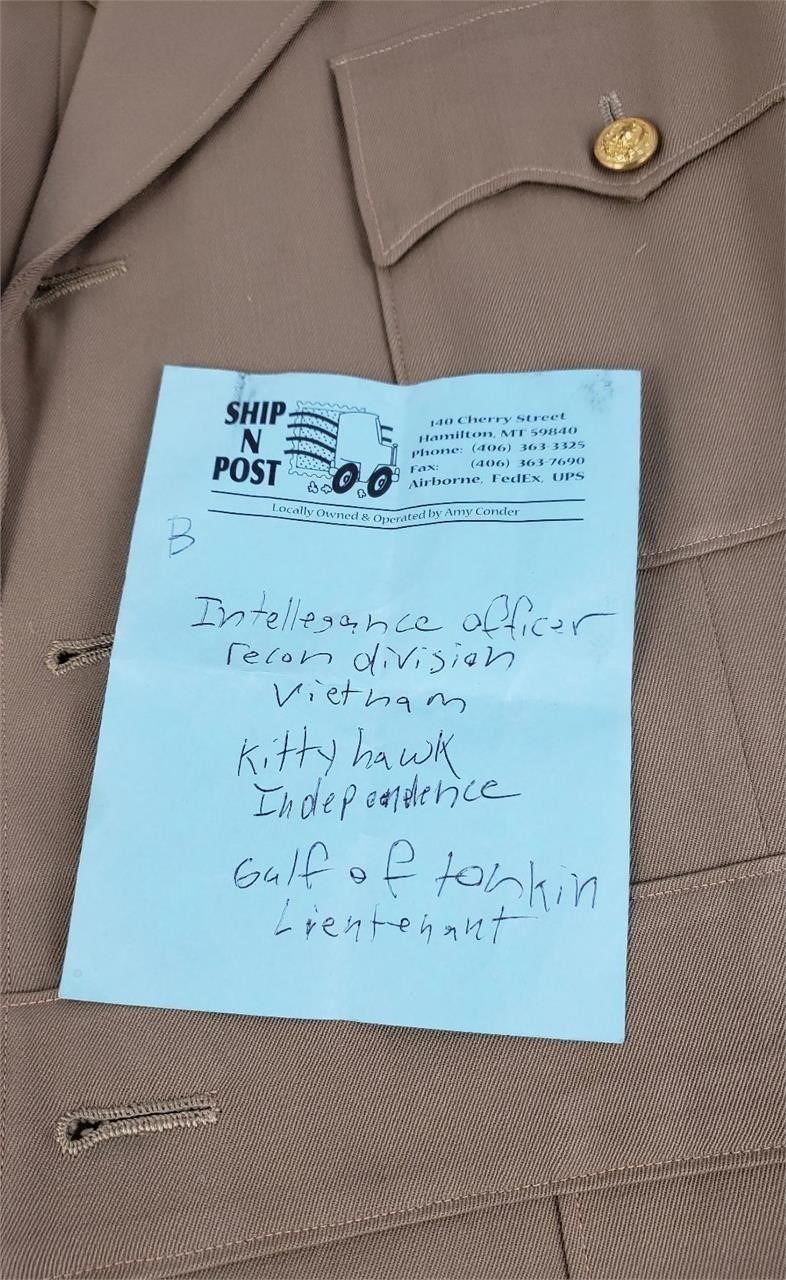 SHIP
N
POST
140 Cherry Street
Hamilton, MT 59840
Phone: (406) 363-3325
Fax: (406) 363-7690
Airborne, FedEx, UPS
Locally Owned & Operated by Amy Conder
B
Intellegance officer
recon division
Vietnam
Kitty hawk
Independence
Gulf of tonkin
Lientenant